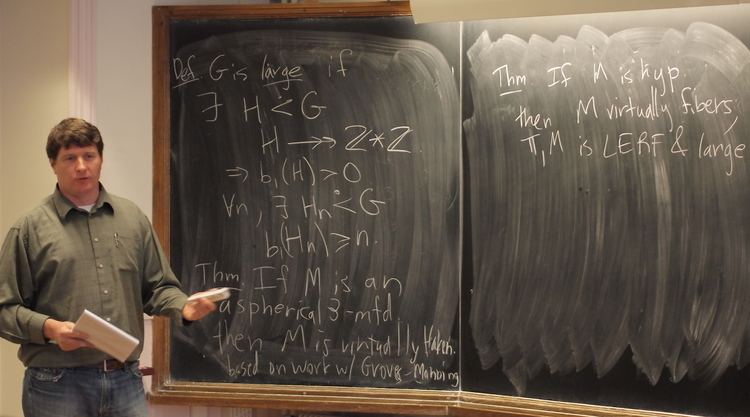 Def G is large if
∃ H < G
H ->> Z * Z
⇒ b₁(H) > 0
∀n, ∃ Hn < G
b₁(Hn) ≥ n.
Thm. If M is an
aspherical 3-mfd
then M is virtually Haken.
based on work w/ Groves-Manning
Thm If M is hyp.
then M virtually fibers,
π₁M is LERF & large